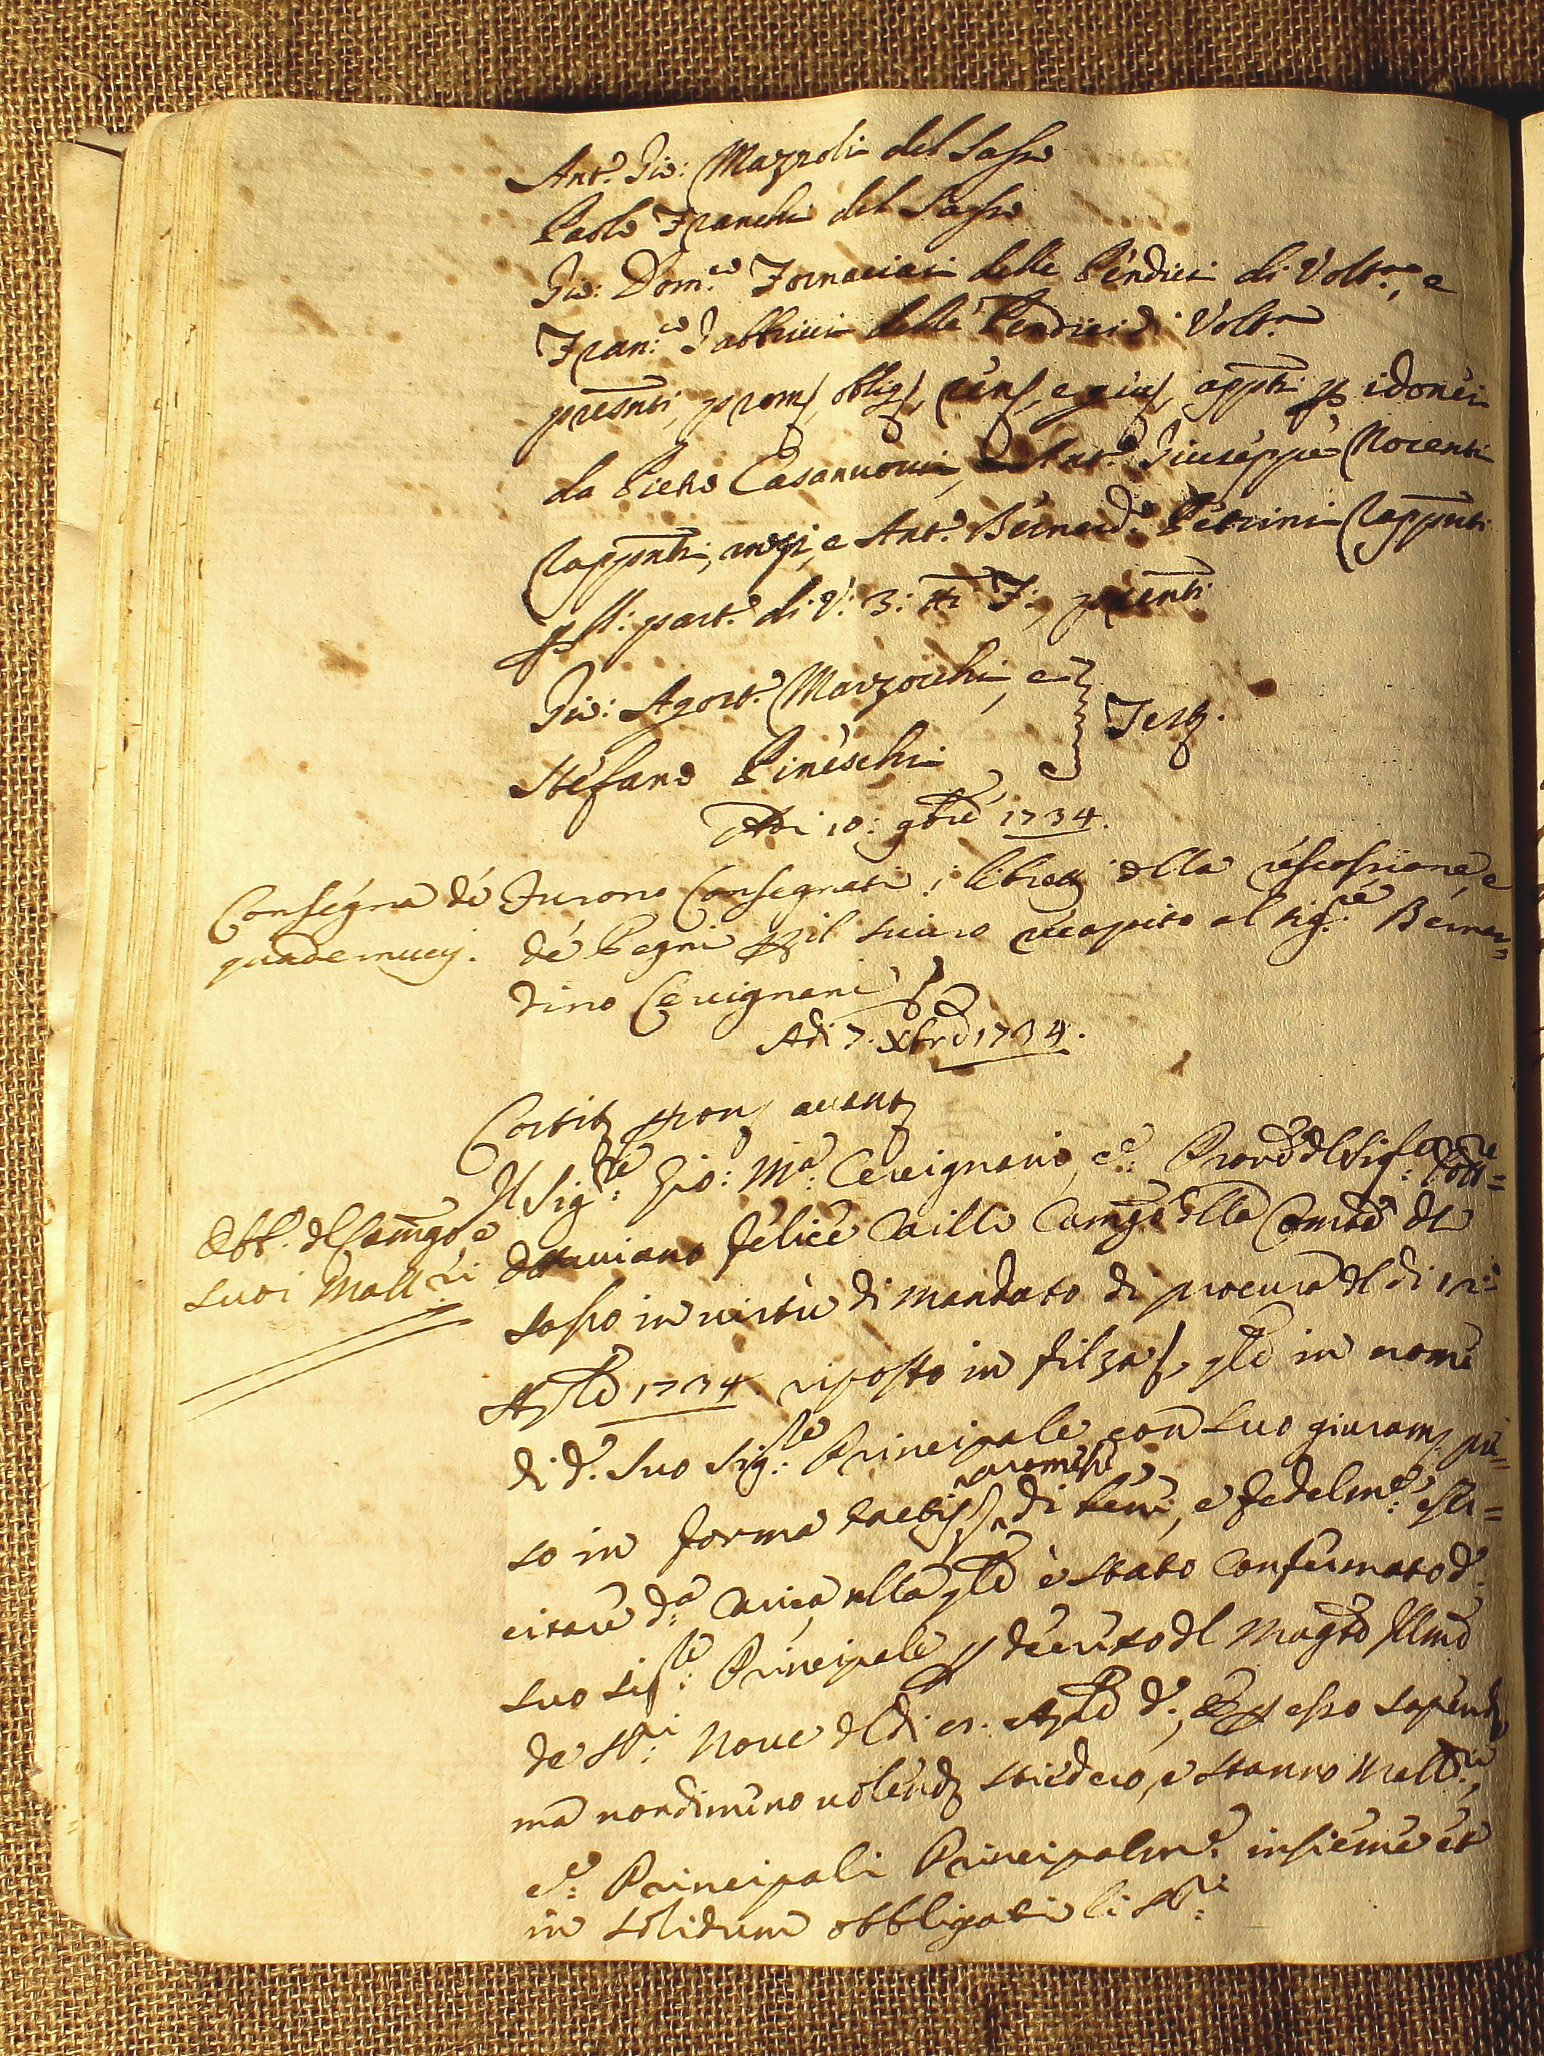 Ant.o Gio: Mazzoli del Sasso
Paolo Franchi del Sasso
Gio: Dom.co Fornaciari delle Pendici di Volt.ra, e
Fran.co Gabbricci delle Pendici di Volt.ra
presnti, prom, oblig, ren, e giu, app.ti p idonei
da Pietro Casanuovi, Ant.o Giuseppe Nocenti
Rapp.nti, e Ant.o Bernard.o Petrini Rapp.nti
p part.o di V: 3: presenti
Gio: Agost.o Marzocchi, e
Stefano Pineschi
Test.
Adi 10: 9bre 1734.
Consegna de
quadernucci.
Furono Consegnati i libretti della riscossione, e
de Pegni p il sicuro recapito al Sig.re Bernar=
dino Ceruignani
Adi 7. Xbre 1734.
Costit. avant
Obb. del Camgo, e
suoi Mall.ri
Il Sig.re Gio: M.a Ceruignani, e Proc.re del Sig.re
Ottaviano Felice Camgo della Comtà del
Sasso in virtù di mandato di procura del di 12:
Aple 1734. riposto in filza, qle in nome
di d.o suo Sig.re Principale con suo giuram. pre=
so in forma promesse di bene, e fedelm.e eser=
citare d.a Carica, nella qle è stato Confermato d.o
suo Sig.re Principale p decreto del Mag.to Ill.mo
de SS.ri Nove del di Aple d.o, e p esso sapendo
ma nondimeno volendo stiedero, e stanno Mall.ri,
e Principali Principalm.e insieme et
in solidum obbligati li SS.ri